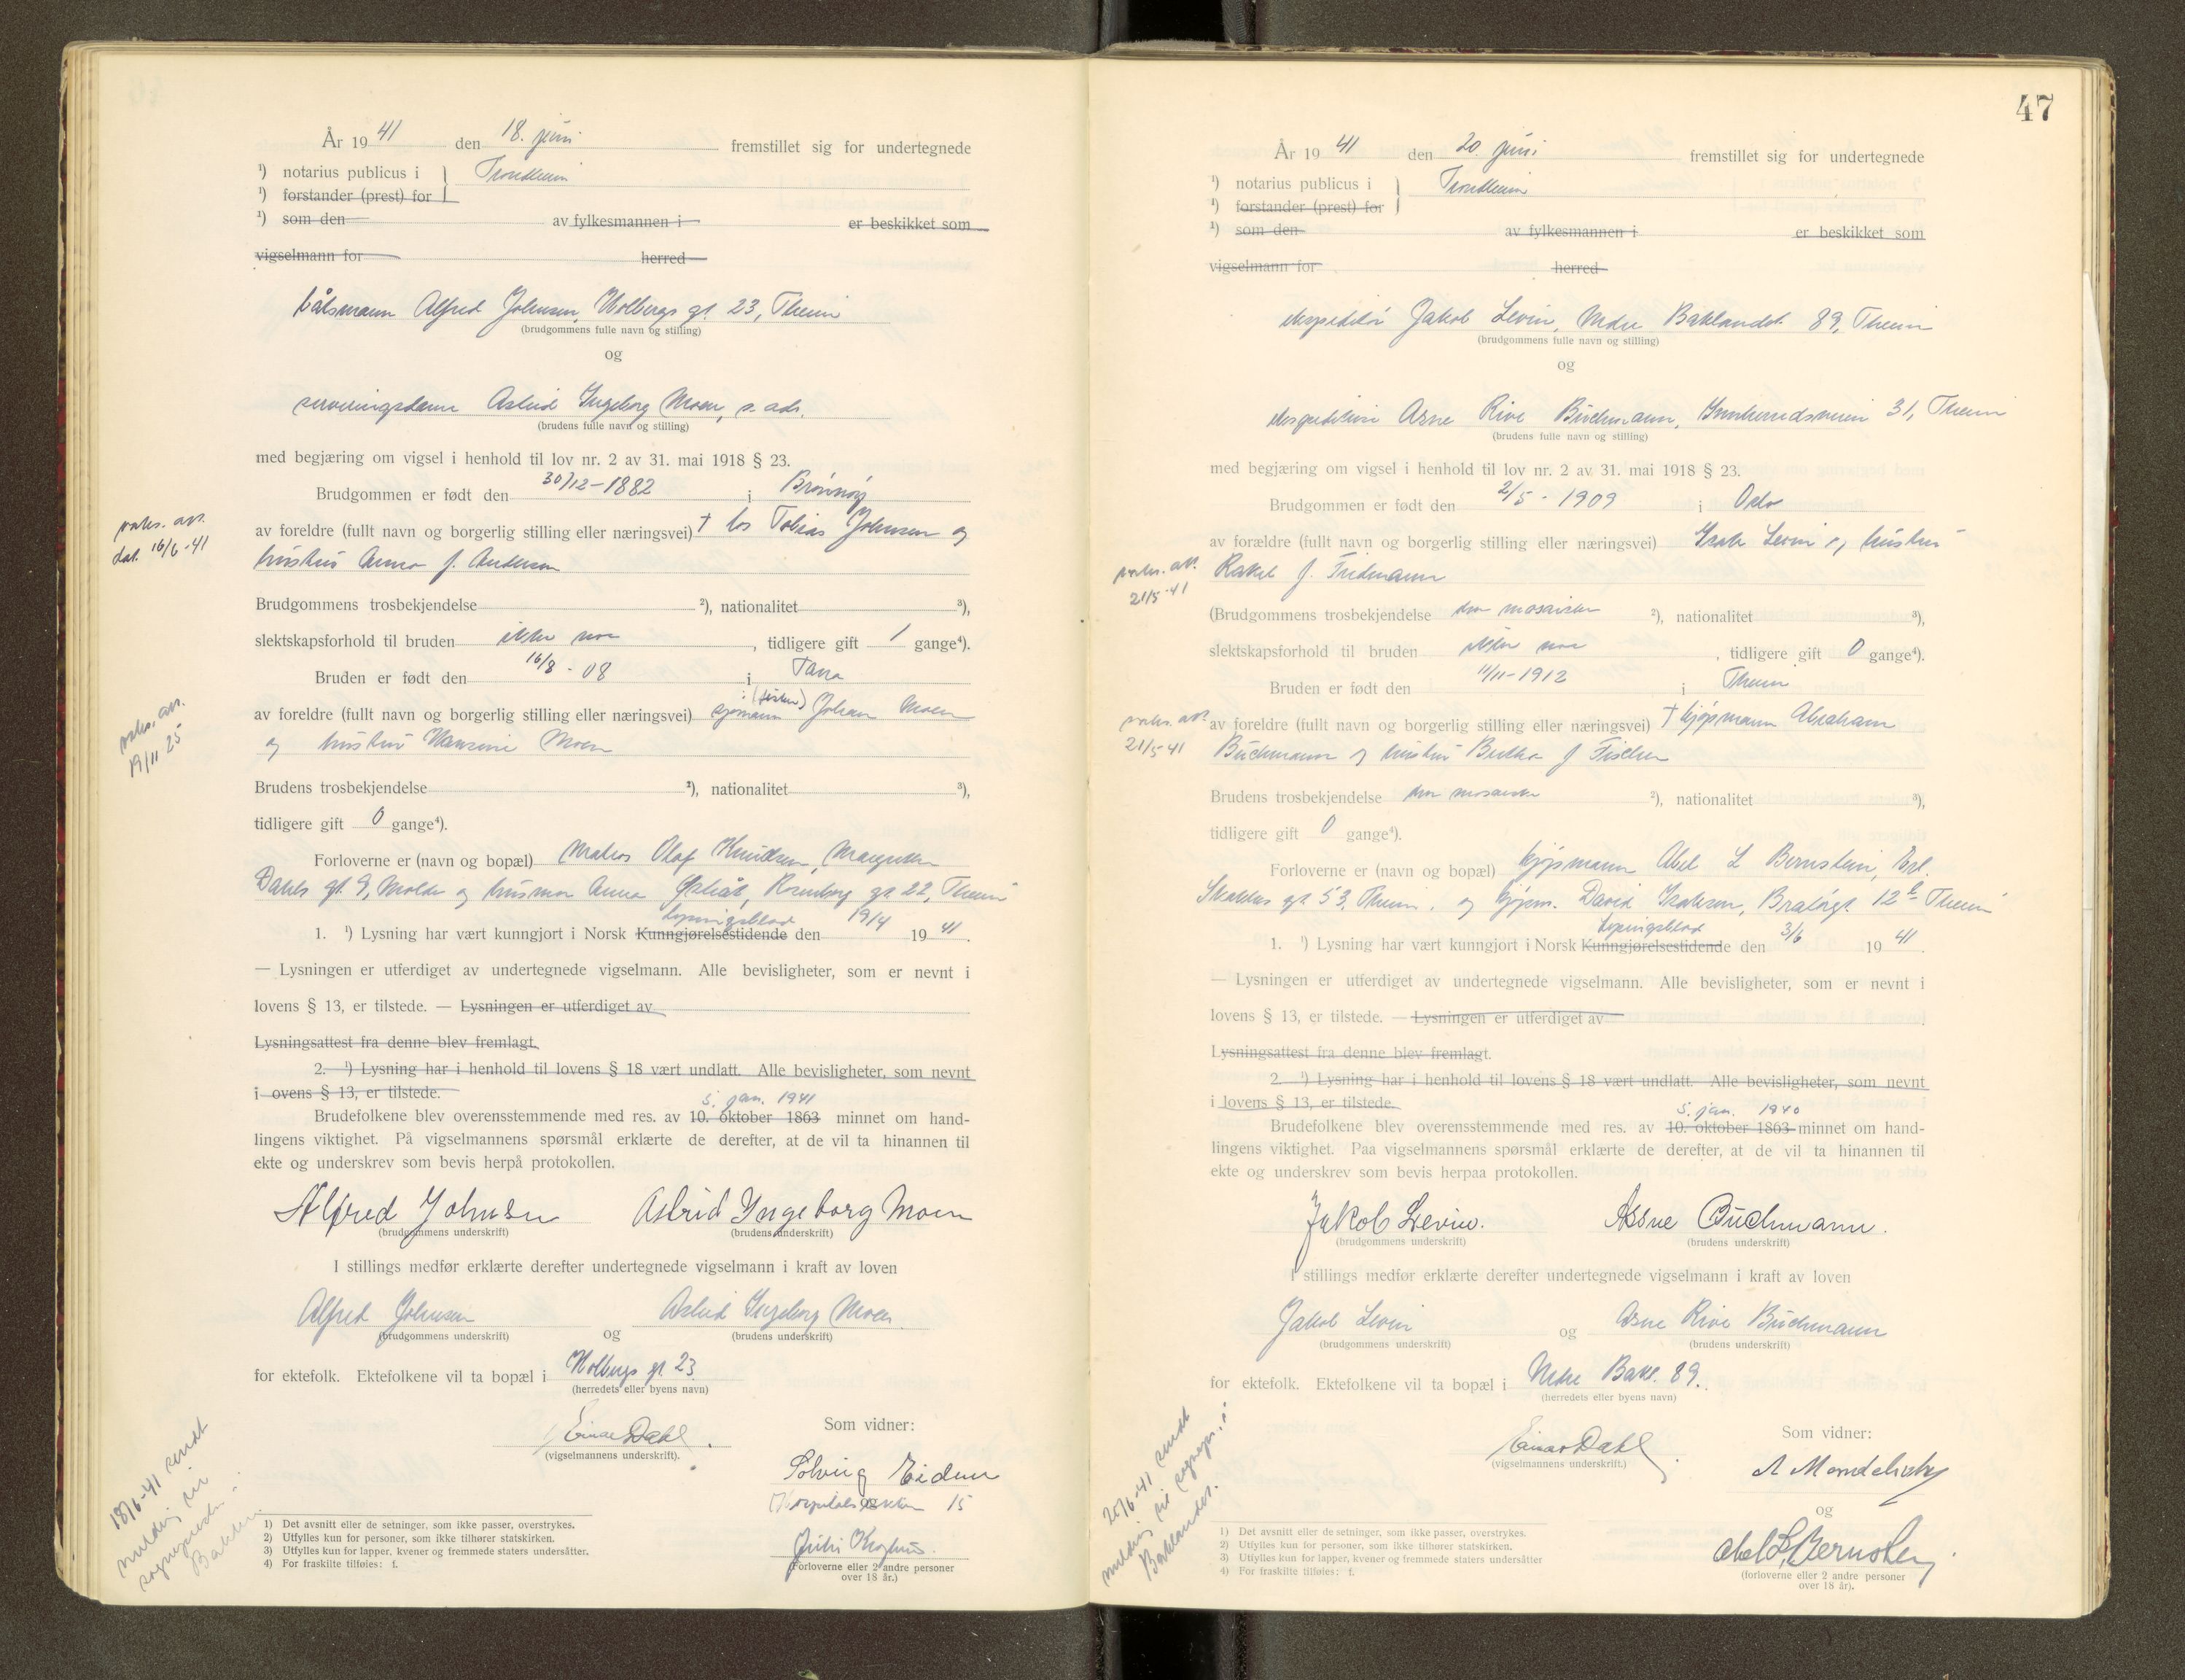 År 19 41 den 18. juni fremstillet sig for undertegnede
¹) notarius publicus i Trondheim
¹) forstander (prest) for
¹) som den av fylkesmannen i er beskikket som
vigselmann for herred
båtsmann Alfred Johnsen, Holbergs gt. 23, Theim
(brudgommens fulle navn og stilling)
og
serveringsdame Astrid Ingeborg Moen, s. adr.
(brudens fulle navn og stilling)
med begjæring om vigsel i henhold til lov nr. 2 av 31. mai 1918 § 23.
Brudgommen er født den 30/12-1882 i Brønnøy
vaks. att.
dat. 16/6-41
av foreldre (fullt navn og borgerlig stilling eller næringsvei) † los Tobias Johnsen og
hustru Anna f. Andersen
Brudgommens trosbekjendelse ²), nationalitet ³),
slektskapsforhold til bruden ikke noe, tidligere gift 1 gange⁴).
Bruden er født den 16/8 - 08 i Tana
vaks. att.
19/11 25
av foreldre (fullt navn og borgerlig stilling eller næringsvei) sjømann (fisker) Johan Moen
og hustru Hansine Moen
Brudens trosbekjendelse ²), nationalitet ³),
tidligere gift 0 gange⁴).
Forloverne er (navn og bopæl) Matros Olaf Knudsen, Margrethe
Dahls gt. 9, Molde og husmor Anna Opståt, Rosenborg gt. 22, Theim
1. ¹) Lysning har vært kunngjort i Norsk Kunngjørelsestidende Lysningsblad den 19/4 19 41.
— Lysningen er utferdiget av undertegnede vigselmann. Alle bevisligheter, som er nevnt i
lovens § 13, er tilstede. — Lysningen er utferdiget av
Lysningsattest fra denne blev fremlagt.
2. ¹) Lysning har i henhold til lovens § 18 vært undlatt. Alle bevisligheter, som nevnt
i ovens § 13, er tilstede.
5. jan. 1941
Brudefolkene blev overensstemmende med res. av 10. oktober 1863 minnet om hand-
lingens viktighet. På vigselmannens spørsmål erklærte de derefter, at de vil ta hinannen til
ekte og underskrev som bevis herpå protokollen.
Alfred Johnsen Astrid Ingeborg Moen
(brudgommens underskrift) (brudens underskrift)
I stillings medfør erklærte derefter undertegnede vigselmann i kraft av loven
Alfred Johnsen og Astrid Ingeborg Moen
(brudgommens underskrift) (brudens underskrift)
for ektefolk. Ektefolkene vil ta bopæl i Holbergs gt. 23
(herredets eller byens navn)
Einar Dahl
(vigselmannens underskrift).
Som vidner:
Solveig Eidem
15
(Forloverne eller 2 andre personer
over 18 år.)
18/6-41 sendt
melding til
sogneprest
1) Det avsnitt eller de setninger, som ikke passer, overstrykes.
2) Utfylles kun for personer, som ikke tilhører statskirken.
3) Utfylles kun for lapper, kvener og fremmede staters undersåtter.
4) For fraskilte tilføies: f.
47
År 19 41 den 20. juni fremstillet sig for undertegnede
¹) notarius publicus i Trondheim
¹) forstander (prest) for
¹) som den av fylkesmannen i er beskikket som
vigselmann for herred
ekspeditør Jakob Levin, Nedre Baklandet 89, Theim
(brudgommens fulle navn og stilling)
og
ekspeditrise Asne Rive Buchmann, Innherredsveien 31, Theim
(brudens fulle navn og stilling)
med begjæring om vigsel i henhold til lov nr. 2 av 31. mai 1918 § 23.
Brudgommen er født den 2/5 - 1909 i Oslo
av forældre (fullt navn og borgerlig stilling eller næringsvei) Isak Levin og hustru
vaks. att.
21/5-41
Rakel f. Fridmann
(Brudgommens trosbekjendelse den mosaiske ²), nationalitet ³),
slektskapsforhold til bruden ikke noe, tidligere gift 0 gange⁴).
Bruden er født den 11/11-1912 i Theim
vaks. att.
21/5-41
av foreldre (fullt navn og borgerlig stilling eller næringsvei) † kjøpmann Abraham
Buchmann og hustru Bertha f Fischer
Brudens trosbekjendelse den mosaiske ²), nationalitet ³),
tidligere gift 0 gange⁴).
Forloverne er (navn og bopæl) kjøpmann Abel L Bernstein, Erl.
Skakkes gt 53, Theim. og kjøpm. David Isaksen, Bratørgt. 12 b Theim
1. ¹) Lysning har vært kunngjort i Norsk Kunngjørelsestidende Lysningsblad den 3/6 19 41.
— Lysningen er utferdiget av undertegnede vigselmann. Alle bevisligheter, som er nevnt i
lovens § 13, er tilstede. — Lysningen er utferdiget av
Lysningsattest fra denne blev fremlagt.
2. ¹) Lysning har i henhold til lovens § 18 vært undlatt. Alle bevisligheter, som nevnt
i lovens § 13, er tilstede.
5. jan. 1940
Brudefolkene blev overensstemmende med res. av 10. oktober 1863 minnet om hand-
lingens viktighet. Paa vigselmannens spørsmål erklærte de derefter, at de vil ta hinannen til
ekte og underskrev som bevis herpaa protokollen.
Jakob Levin. Asne Buchmann.
(brudgommens underskrift) (brudens underskrift)
I stillings medfør erklærte derefter undertegnede vigselmann i kraft av loven
Jakob Levin og Asne Rive Buchmann
(brudgommens underskrift) (brudens underskrift)
for ektefolk. Ektefolkene vil ta bopæl i Nedre Bakl. 89.
(herredets eller byens navn)
Einar Dahl
(vigselmannens underskrift.)
Som vidner:
og
Abel L. Bernstein
(forloverne eller 2 andre personer
over 18 år).
20/6-41 sendt
melding til sognepr. i
Baklandet.
1) Det avsnitt eller de setninger, som ikke passer, overstrykes.
2) Utfylles kun for personer, som ikke tilhører statskirken.
3) Utfylles kun for lapper, kvener og fremmede staters undersåtter
4) For fraskilte tilføies: f.